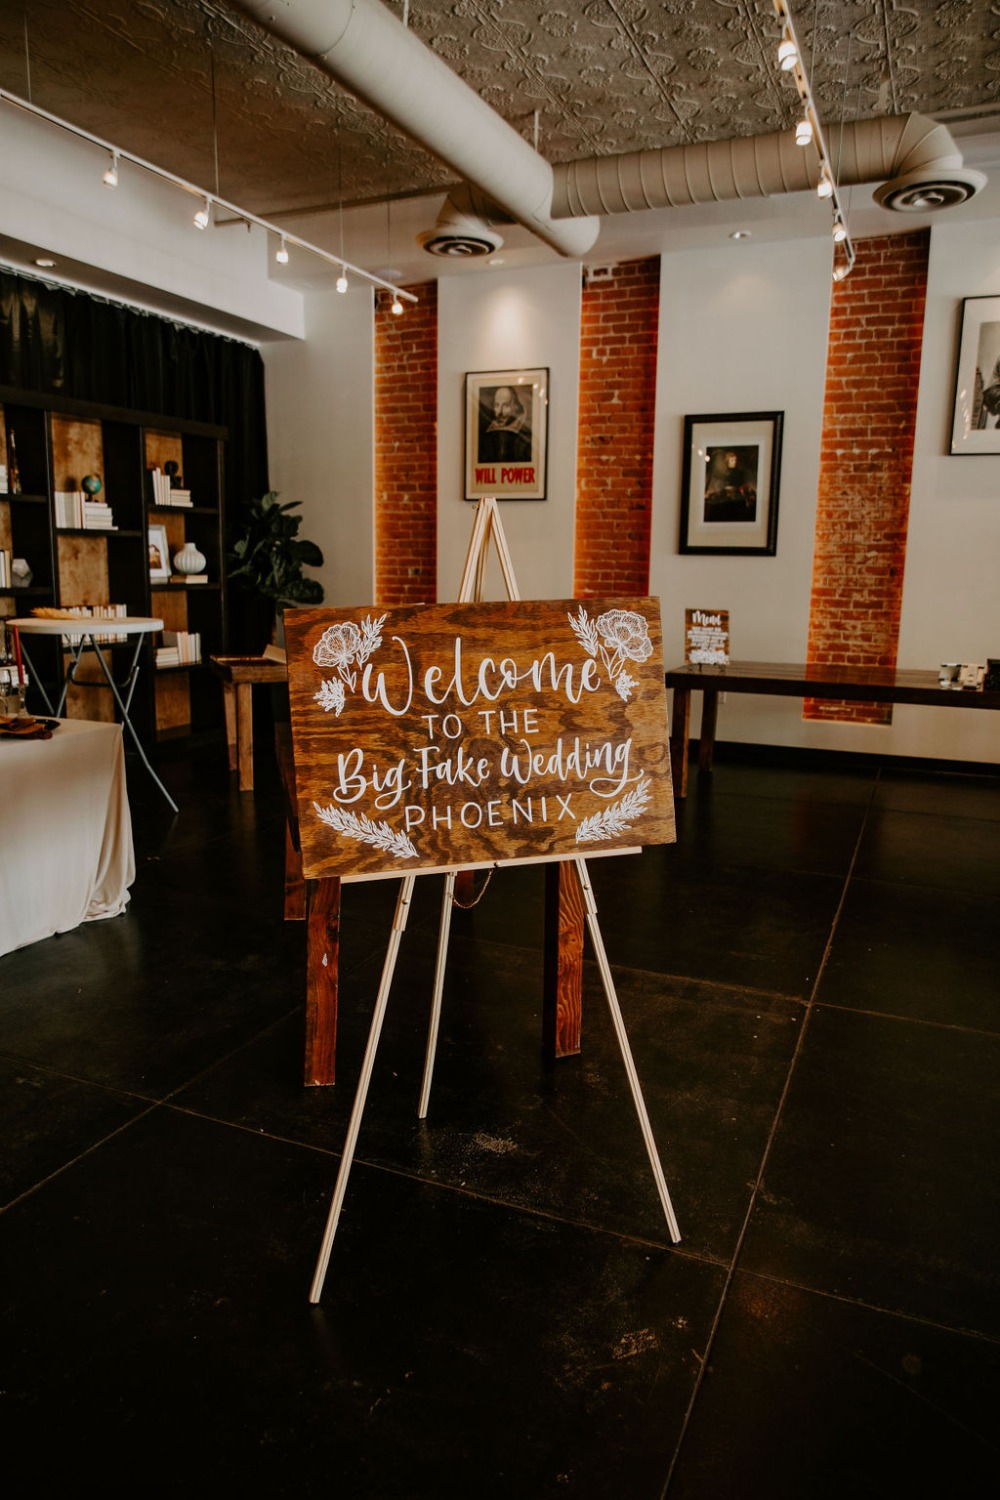 WILL POWER
Welcome
TO THE
Big Fake Wedding
PHOENIX